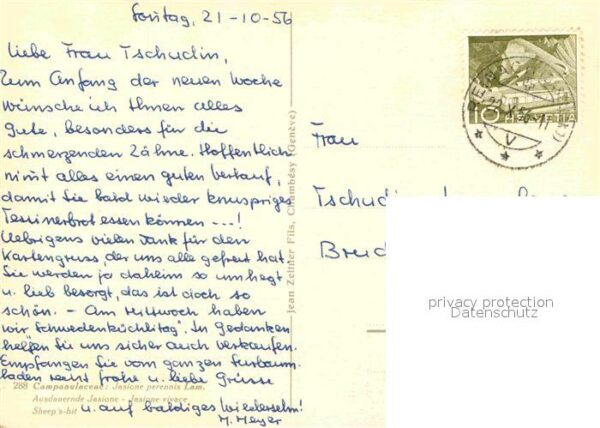 Sonntag, 21-10-56
Liebe Frau Tschudin,
Zum Anfang der neuen Woche
wünsche ich Ihnen alles
Gute, besonders für die
schmerzenden Zähne. Hoffentlich
nimt alles einen guten Verlauf,
damit Sie bald wieder knuspriges
Tessinerbrot essen können ...!
Uebrigens vielen Dank für den
Kartengruss, der uns alle gefreut hat
Sie werden ja daheim so umhegt
u. lieb besorgt, das ist doch so
schön. - Am Mittwoch haben
wir "Schwedenküchlitag". In Gedanken
helfen Sie uns sicher auch verkaufen.
Empfangen Sie vom ganzen
laden recht frohe u. liebe Grüsse
288 Campanulaceae: Jasione perennis Lam.
Ausdauernde Jasione - Jasione vivace
Sheep's-bit
u. auf baldiges Wiedersehn!
M. Meyer
Jean Zeltner Fils, Chambésy (Genève)
10 HELVETIA
Frau
Tschudin
privacy protection
Datenschutz